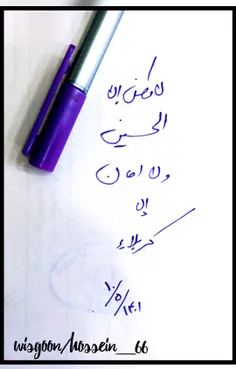 لا وطن إلا
الحسين
ولا امان
إلا
كربلاء
۱۴۰۱/۵/۱۰
wisgoon/hossein__66